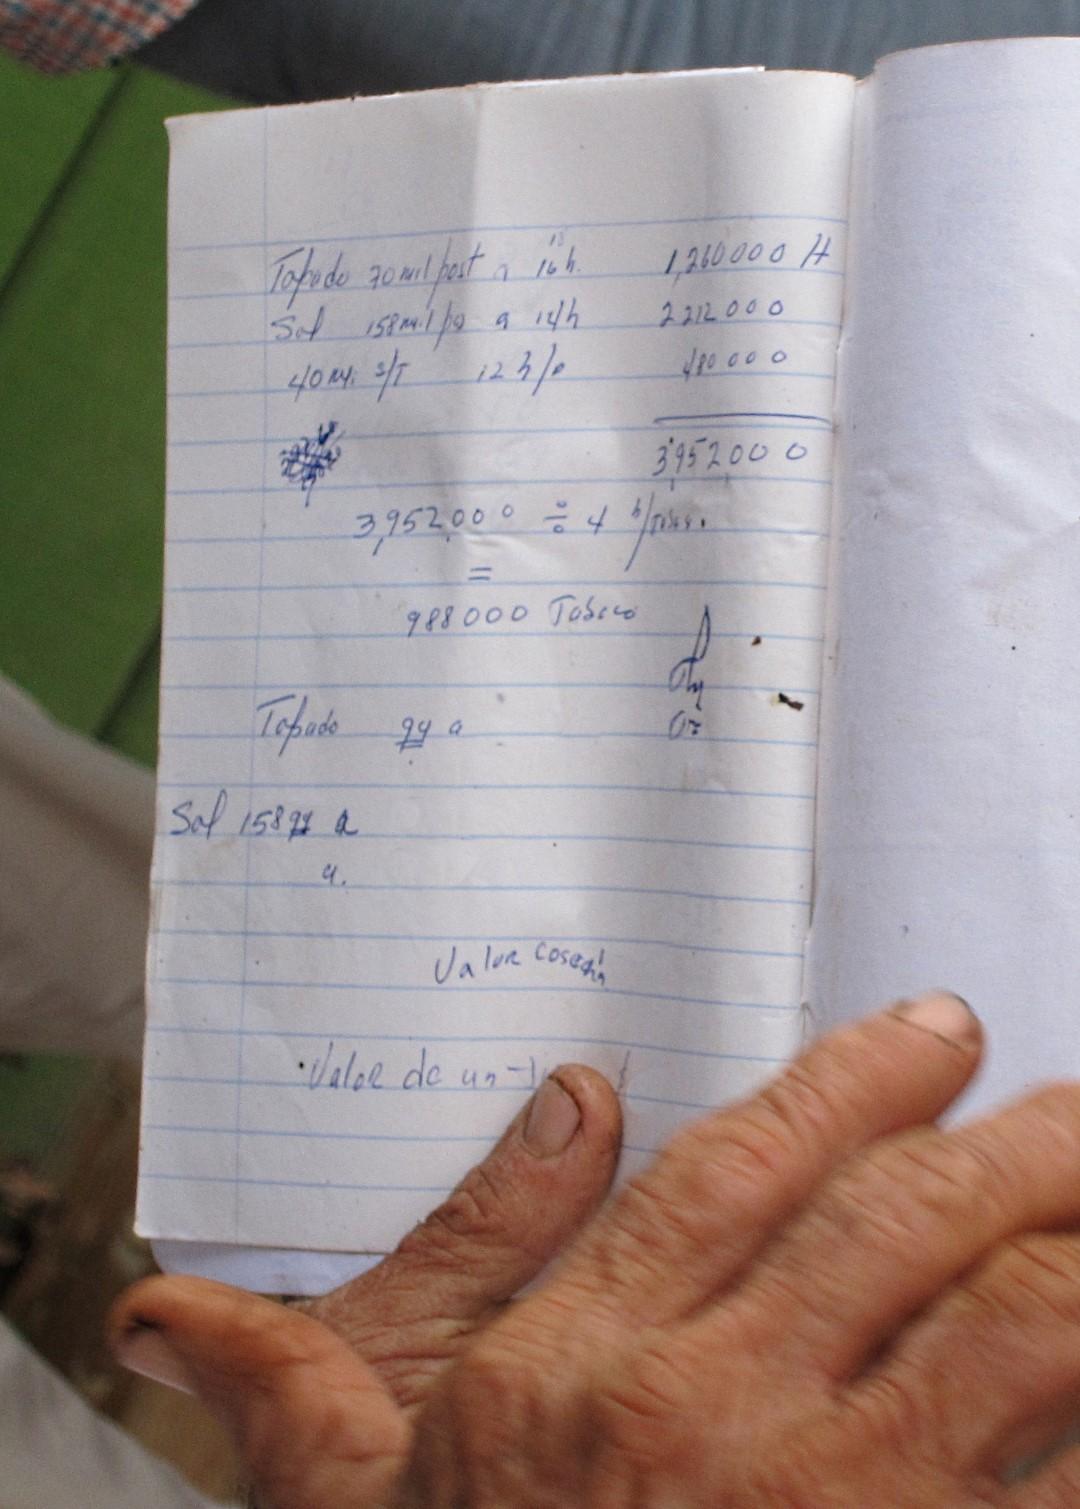 Tapado 70 mil post a 18 16 h. 1,260000 H
Sol 158 mil po a 14h 2212000
40 mi. S/T 12 h/p 480000
3,952000
3,952,000 ÷ 4 h/Tabac.
=
988000 Tabaco
Tapado 94 a
Sol 158 a
a.
Valor cosecha
Valor de un